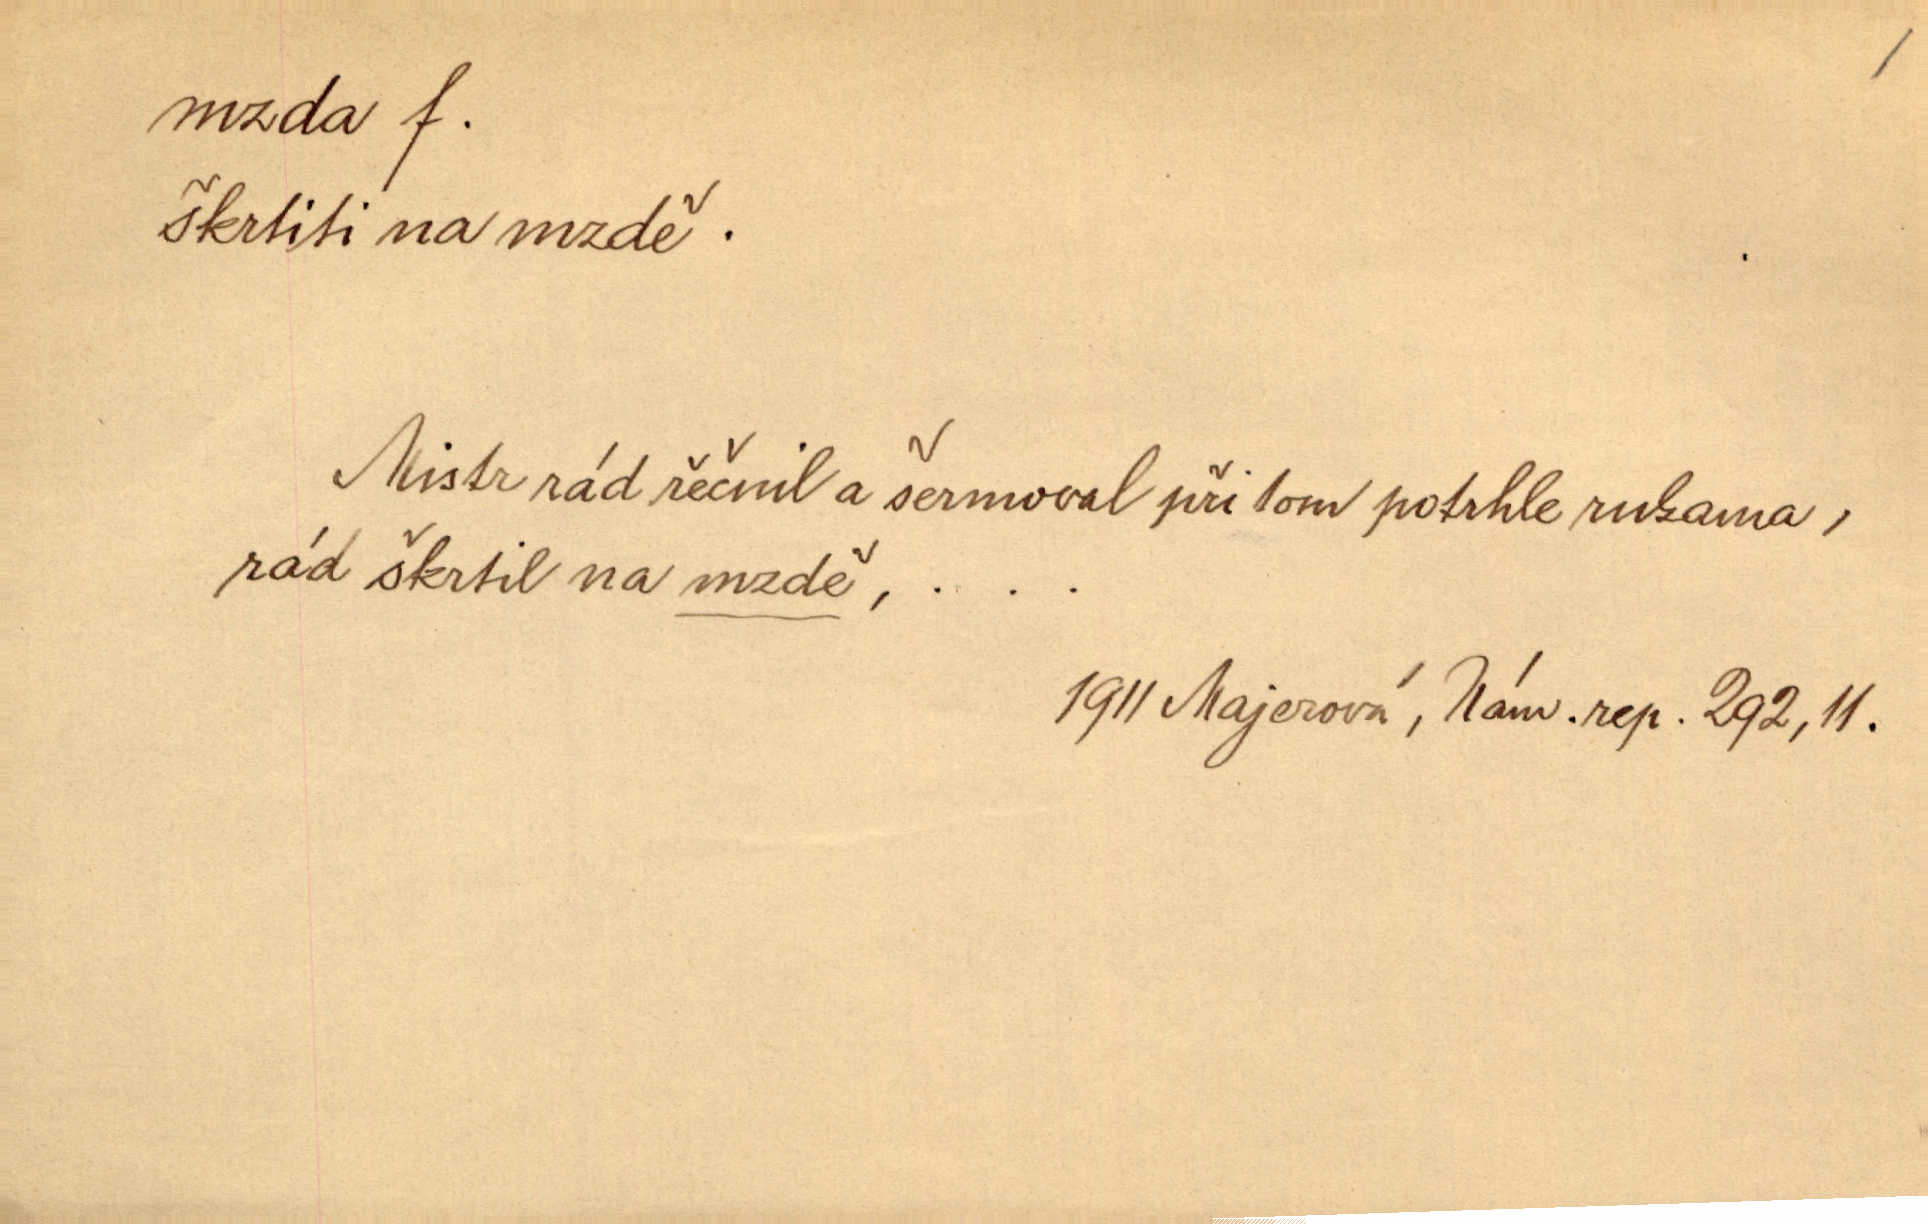 /
mzda f.
škrtiti na mzdě.
Mistr rád řečnil a šermoval při tom potrhle rukama,
rád škrtil na mzdě, . . .
1911 Majerová, Nám. rep. 292, 11.